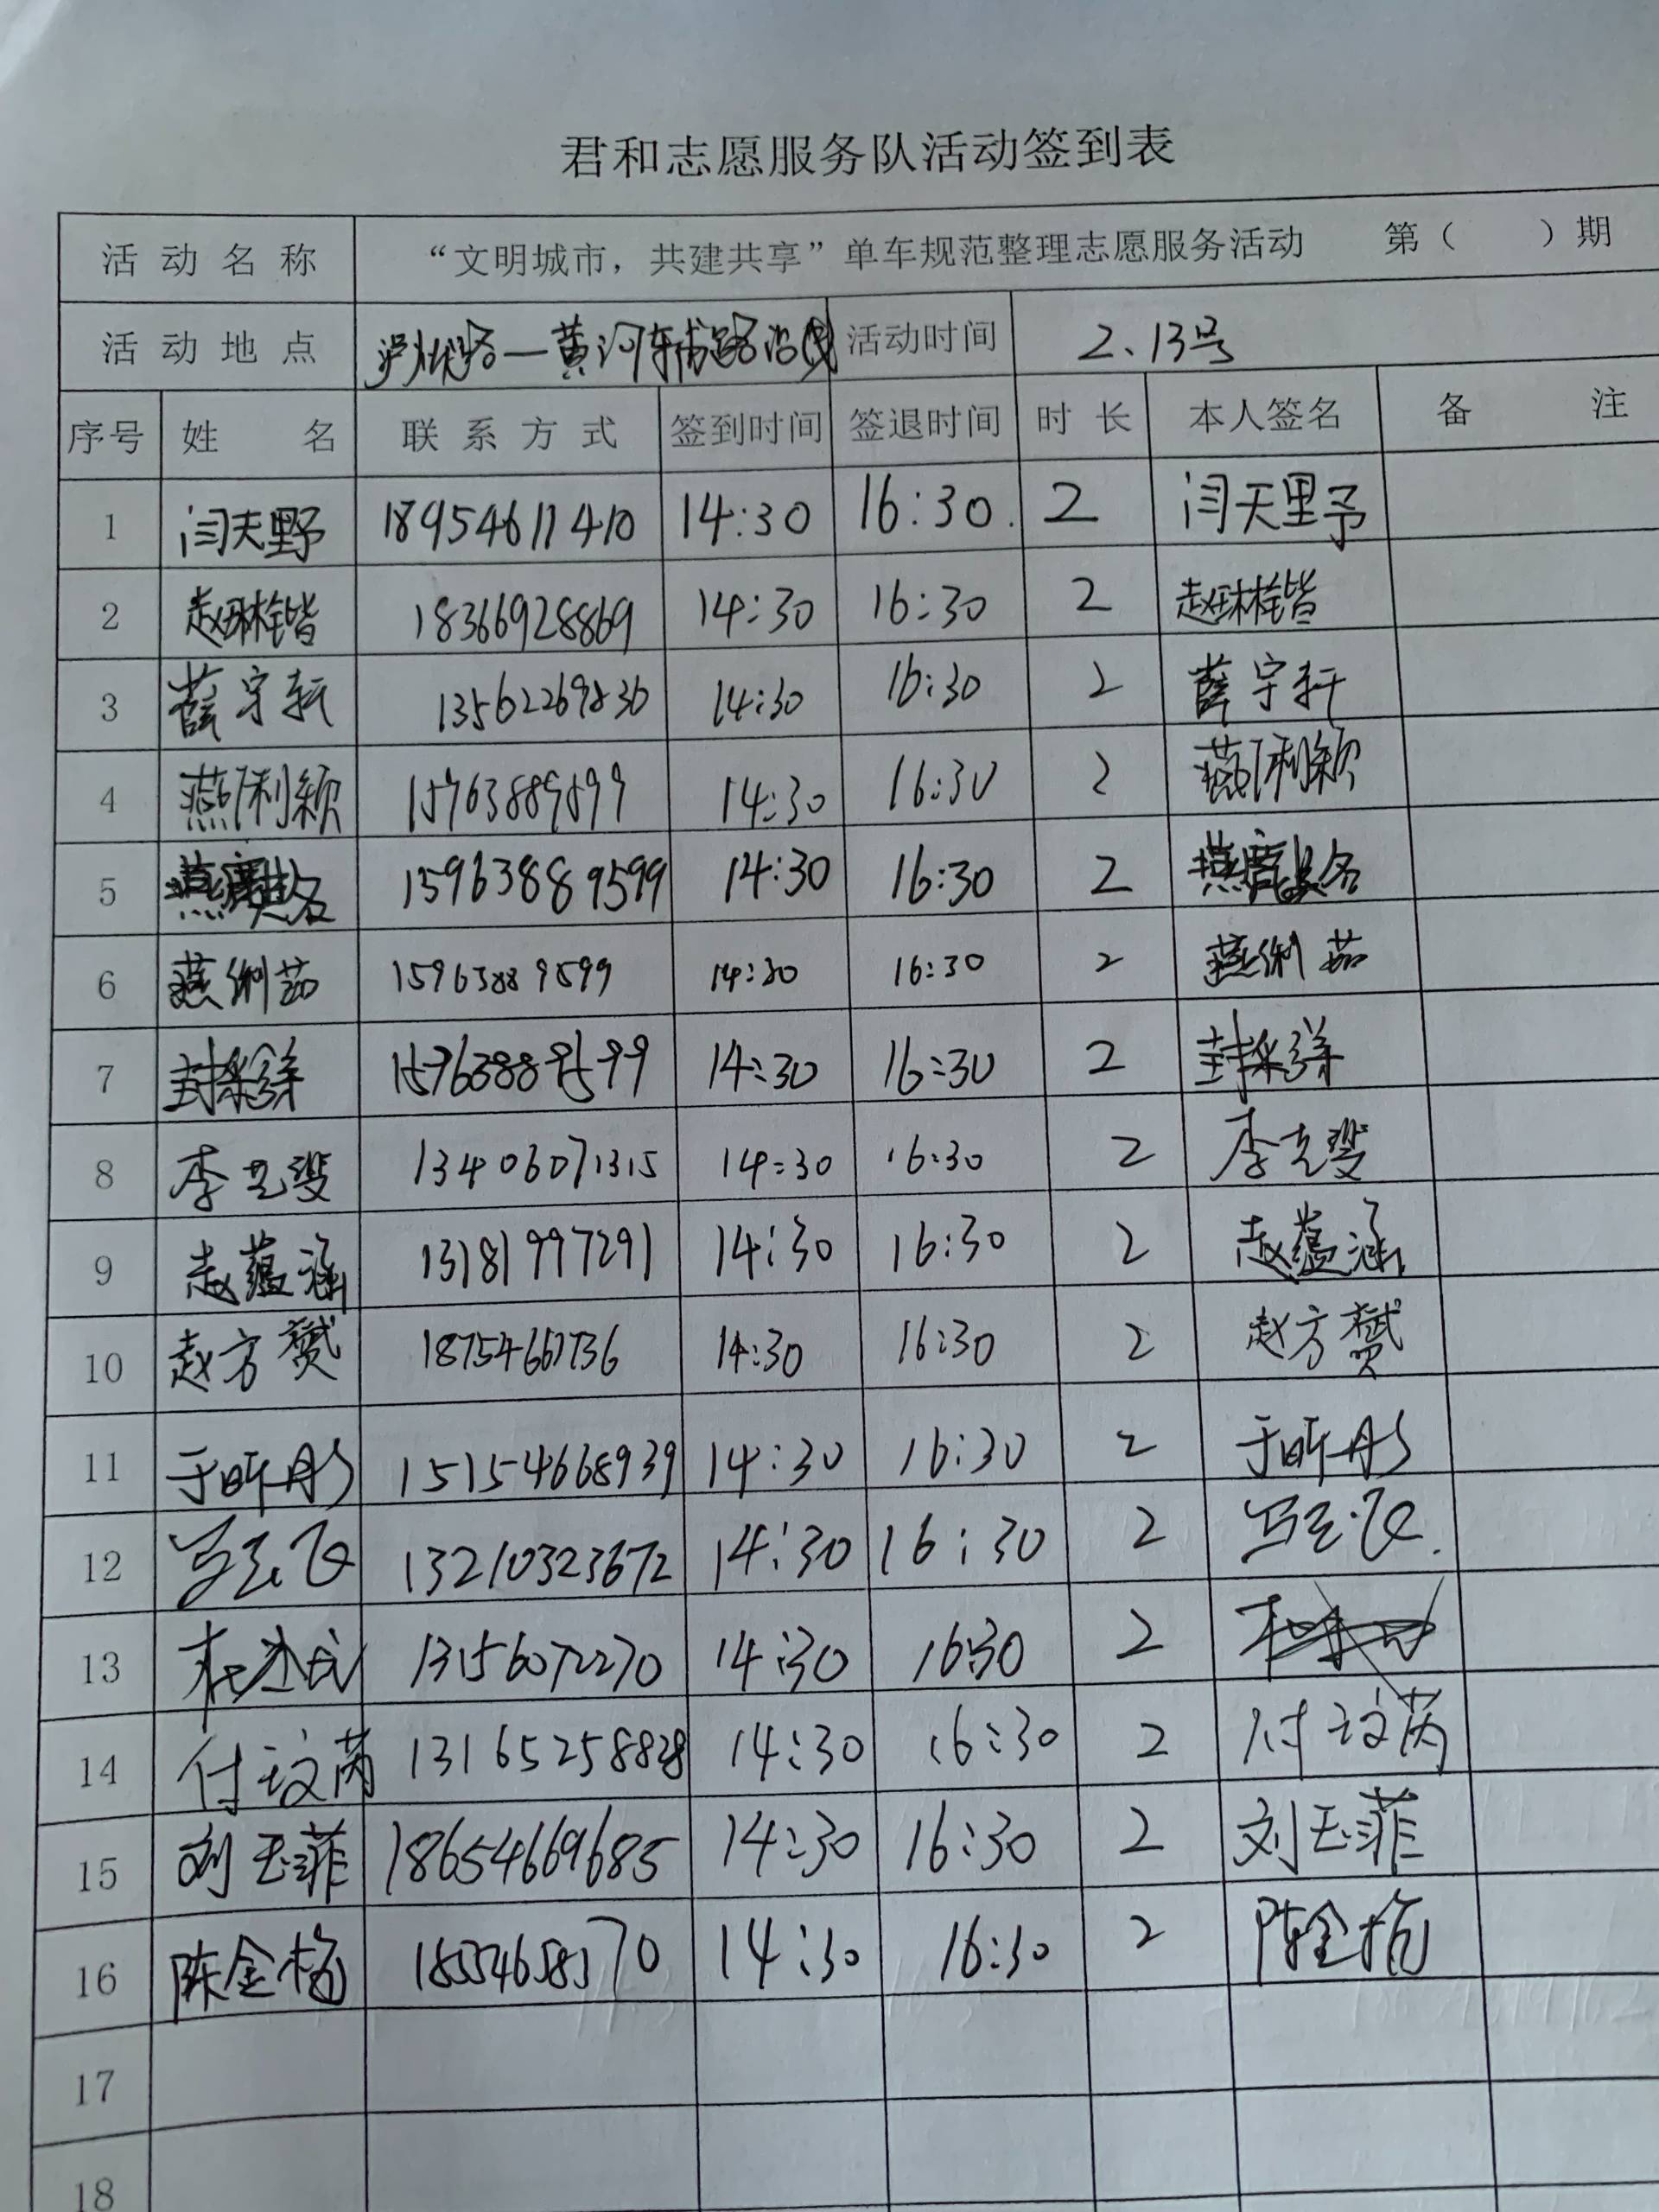 君和志愿服务队活动签到表
活动名称 “文明城市，共建共享”单车规范整理志愿服务活动 第（ ）期
活动地点 泸州路—黄河辅路沿线 活动时间 2、13号
序号 姓名 联系方式 签到时间 签退时间 时长 本人签名 备注
1 闫天野 18954611410 14:30 16:30. 2 闫天野
2 18366928869 14:30 16:30 2
3 薛宇轩 13562269836 14:30 16:30 2 薛宇轩
4 燕俐颖 14:30 16:30 2 燕俐颖
5 15963889599 14:30 16:30 2
6 燕俐茹 15963889599 14:30 16:30 2 燕俐茹
7 15963889599 14:30 16:30 2
8 13406071315 14:30 16:30 2
9 赵蕴涵 13181997291 14:30 16:30 2 赵蕴涵
10 赵方 18754667736 14:30 16:30 2 赵方
11 于昕彤 15154668939 14:30 16:30 2 于昕彤
12 13210323672 14:30 16:30 2
13 13156072270 14:30 16:30 2
14 付玟芮 13165258828 14:30 16:30 2 付玟芮
15 刘玉菲 18654669685 14:30 16:30 2 刘玉菲
16 陈金梅 14:30 16:30 2 陈金梅
17
18